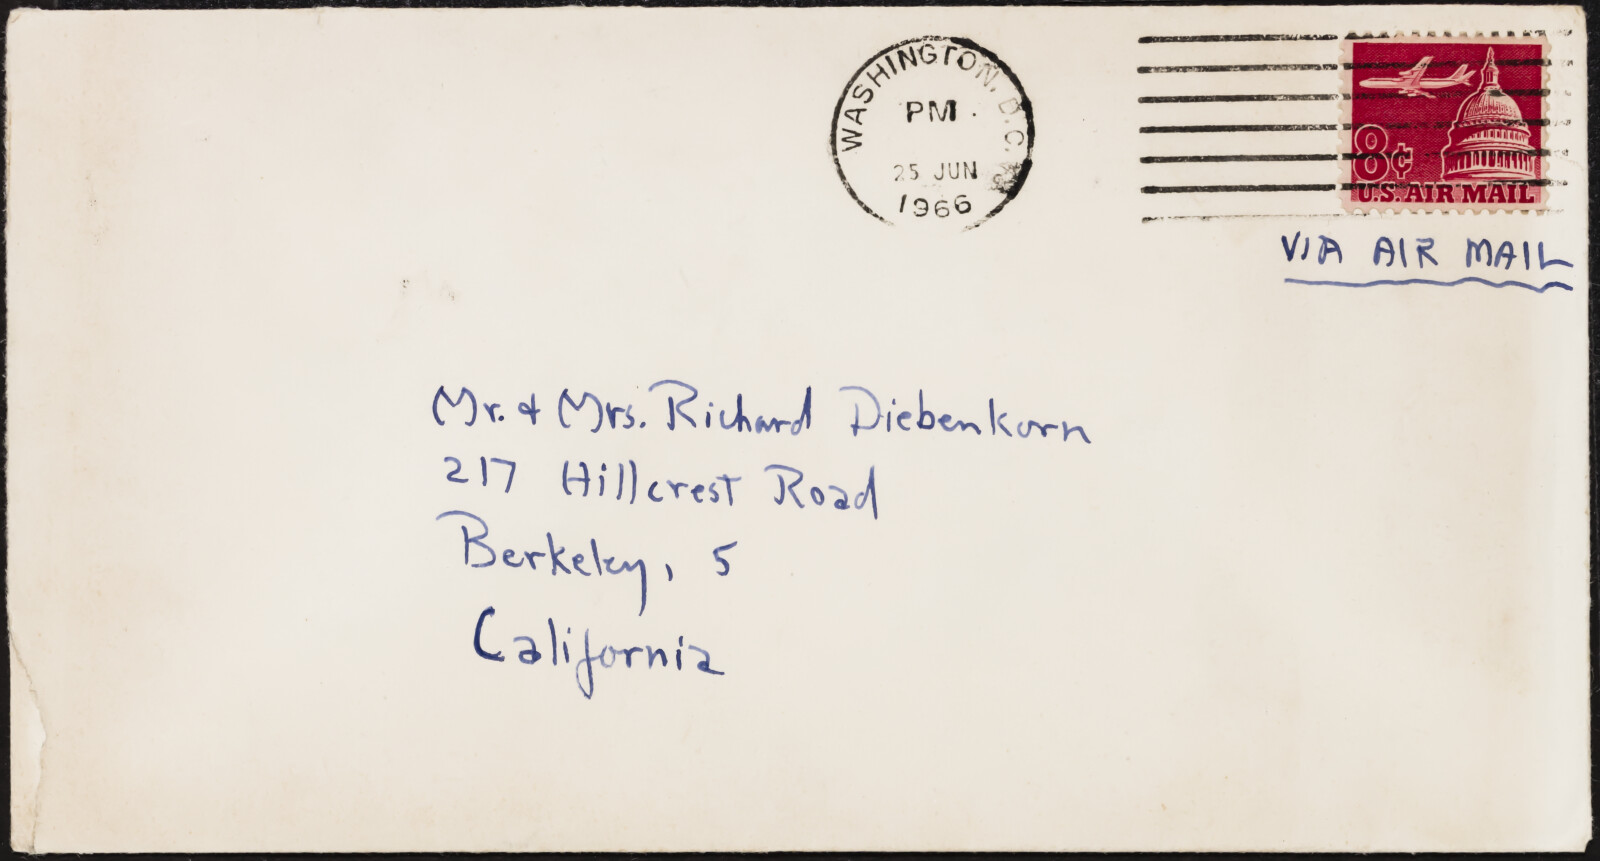 WASHINGTON, D.C.
PM
25 JUN
1966
8¢
U.S. AIR MAIL
VIA AIR MAIL
Mr. & Mrs. Richard Diebenkorn
217 Hillcrest Road
Berkeley, 5
California